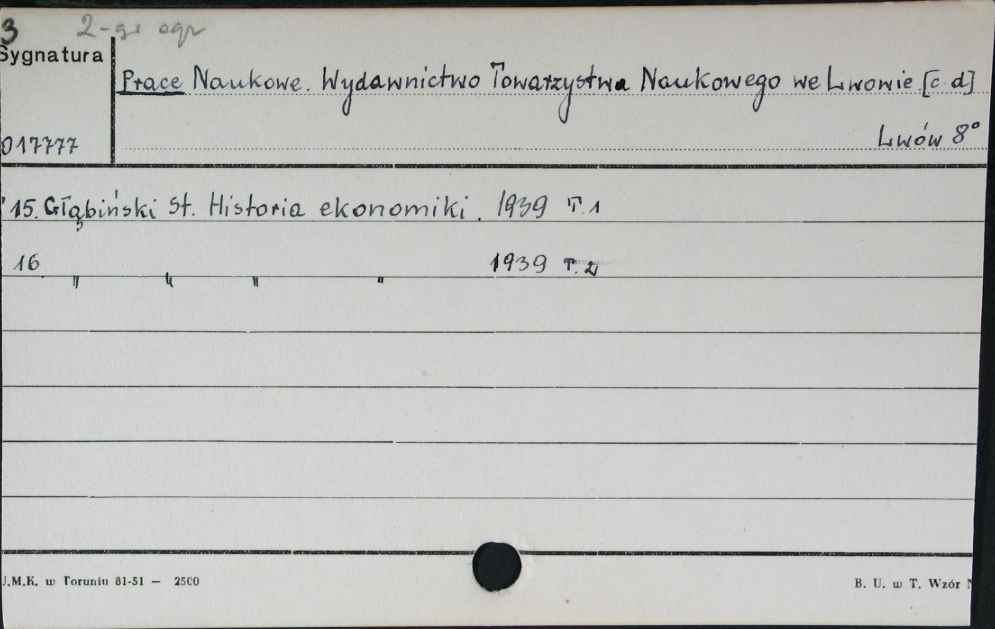 3 2-gi egz
Sygnatura
Prace Naukowe. Wydawnictwo Towarzystwa Naukowego we Lwowie [c.d]
017777 Lwów 8°
15. Głąbiński St. Historia ekonomiki. 1939 T.1
16 " " " " 1939 T.2
U.M.K. w Toruniu 81-51 — 2500 B. U. w T. Wzór